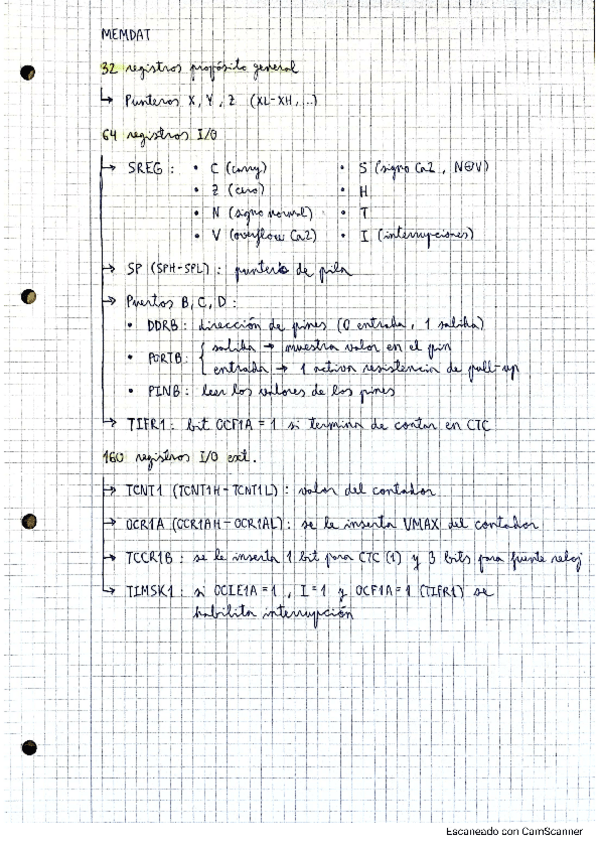 MEMDAT
32 registros propósito general
↳ Punteros X, Y, Z (XL-XH, ...)
64 registros I/O
→ SREG : • C (carry) • S (signo Ca2, N⊕V)
• Z (cero) • H
• N (signo normal) • T
• V (overflow Ca2) • I (interrupciones)
→ SP (SPH-SPL) : puntero de pila
→ Puertos B, C, D :
• DDRB : dirección de pines (0 entrada, 1 salida)
• PORTB : { salida → muestra valor en el pin
entrada → 1 activa resistencia de pull-up
• PINB : leer los valores de los pines
↳ TIFR1 : bit OCF1A = 1 si termina de contar en CTC
160 registros I/O ext.
→ TCNT1 (TCNT1H-TCNT1L) : valor del contador
→ OCR1A (OCR1AH-OCR1AL) : se le inserta VMAX del contador
→ TCCR1B : se le inserta 1 bit para CTC (1) y 3 bits para fuente reloj
↳ TIMSK1 : si OCIE1A = 1, I = 1 y OCF1A = 1 (TIFR1) se
habilita interrupción
Escaneado con CamScanner